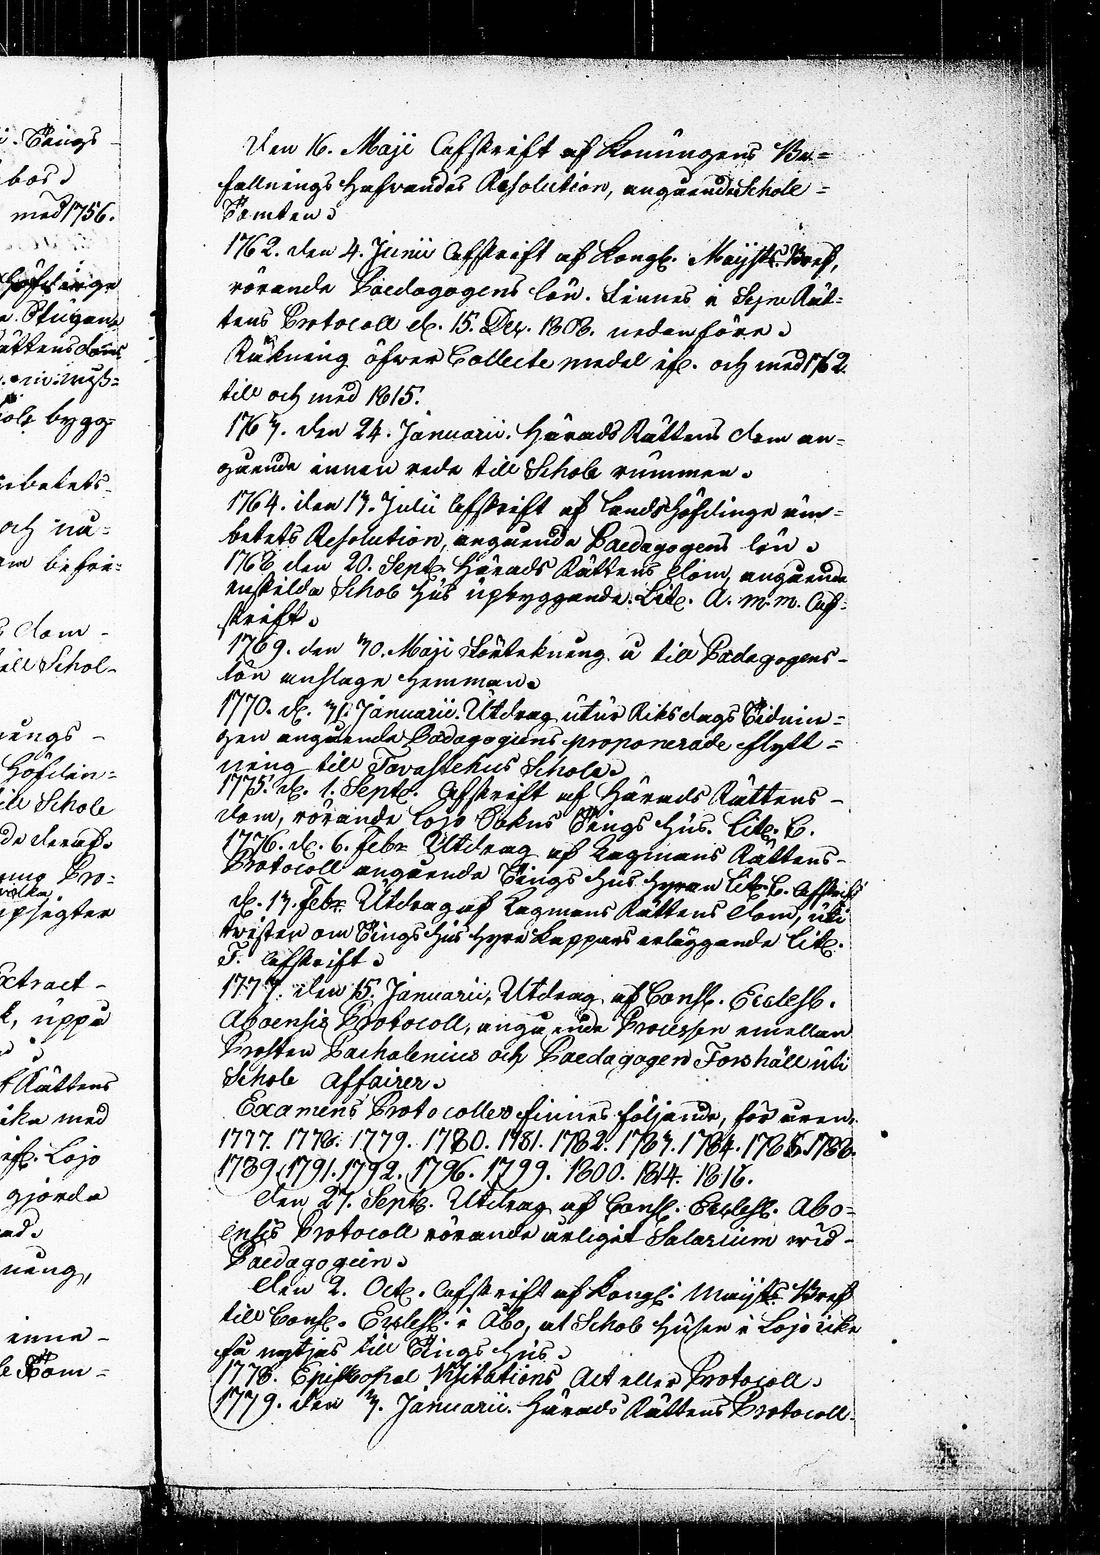 i. Tings-
bos
med 1756.
Höfdinge
Stugan
Rättens dom
bygg-
arbetets-
och nu-
befri-
dom-
till Schol-
Höfdin-
till Schole
de deraf.
Pro-
Extract-
k, uppå
Rättens
ika med
Lojo
gjorda
inne-
Den 16. Maji Afskrift af Konungens Be-
fallnings hafvandes Resolution, angående Schole-
Tomten.
1762. den 4. Junii Afskrift af Kongl. Maij:ts Bref,
rörande Paedagogens lön. Finnes i Syne Rät-
tens Protocoll d. 15. Dec. 1808. nedanföre.
Räkning öfwer Collecte medel ifr. och med 1762.
till och med 1815.
1763. den 24. Januarii. Härads Rättens dom an-
gående innan rede till Schole rummen.
1764. den 13. Julii Afskrift af Landshöfdinge äm-
betets Resolution, angående Paedagogens lön.
1768 den 20. Sept. Härads Rättens Dom, angående
enskilda Schole Hus upbyggande. Litt. A. m.m. Af-
skrift.
1769. den 30. Maji Förtekning å till Pædagogens-
lön anslagne Hemman.
1770. d. 31. Januarii. Utdrag utur Riksdags Tidnin-
gen angående Pædagogiens proponerade flytt-
ning till Tavastehus Schole.
1775. d. 1. Sept. Afskrift af Härads Rättens-
dom, rörande Lojo Sokns Tings Hus. Litt. C.
1776. d. 6. Febr. Utdrag af Lagmans Rättens-
Protocoll angående Tings Hus hyran Litt. E. Afskrift
d. 13. Febr. Utdrag af Lagmans Rättens Dom, uti
twisten om Tings Hus hyre Kappars erläggande Litt.
F. Afskrift.
1777. den 15. Januarii, Utdrag af Cons. Eccles.
Aboensis Protocoll, angående Processen emellan
Prosten Pacchalenius och Paedagogen Forshäll uti
Schole affairer.
Examens Protocoller finnes följande, för åren.
1777. 1778. 1779. 1780. 1781. 1782. 1783. 1784. 1785. 1788.
1789. 1791. 1792. 1796. 1799. 1800. 1814. 1816.
Den 27. Sept. Utdrag af Cons. Eccles. Abo-
ensis Protocoll rörande årligit Salarium wid-
Paedagogien.
Den 2. Oct. Afskrift af Kongl. Maij:ts Bref
till Cons. Eccles. i Åbo, at Schole Husen i Lojo icke
få nyttjas till Tings Hus.
1778. Episkopal Visitations Act eller Protocoll.
1779. den 3. Januarii. Härads Rättens Protocoll-